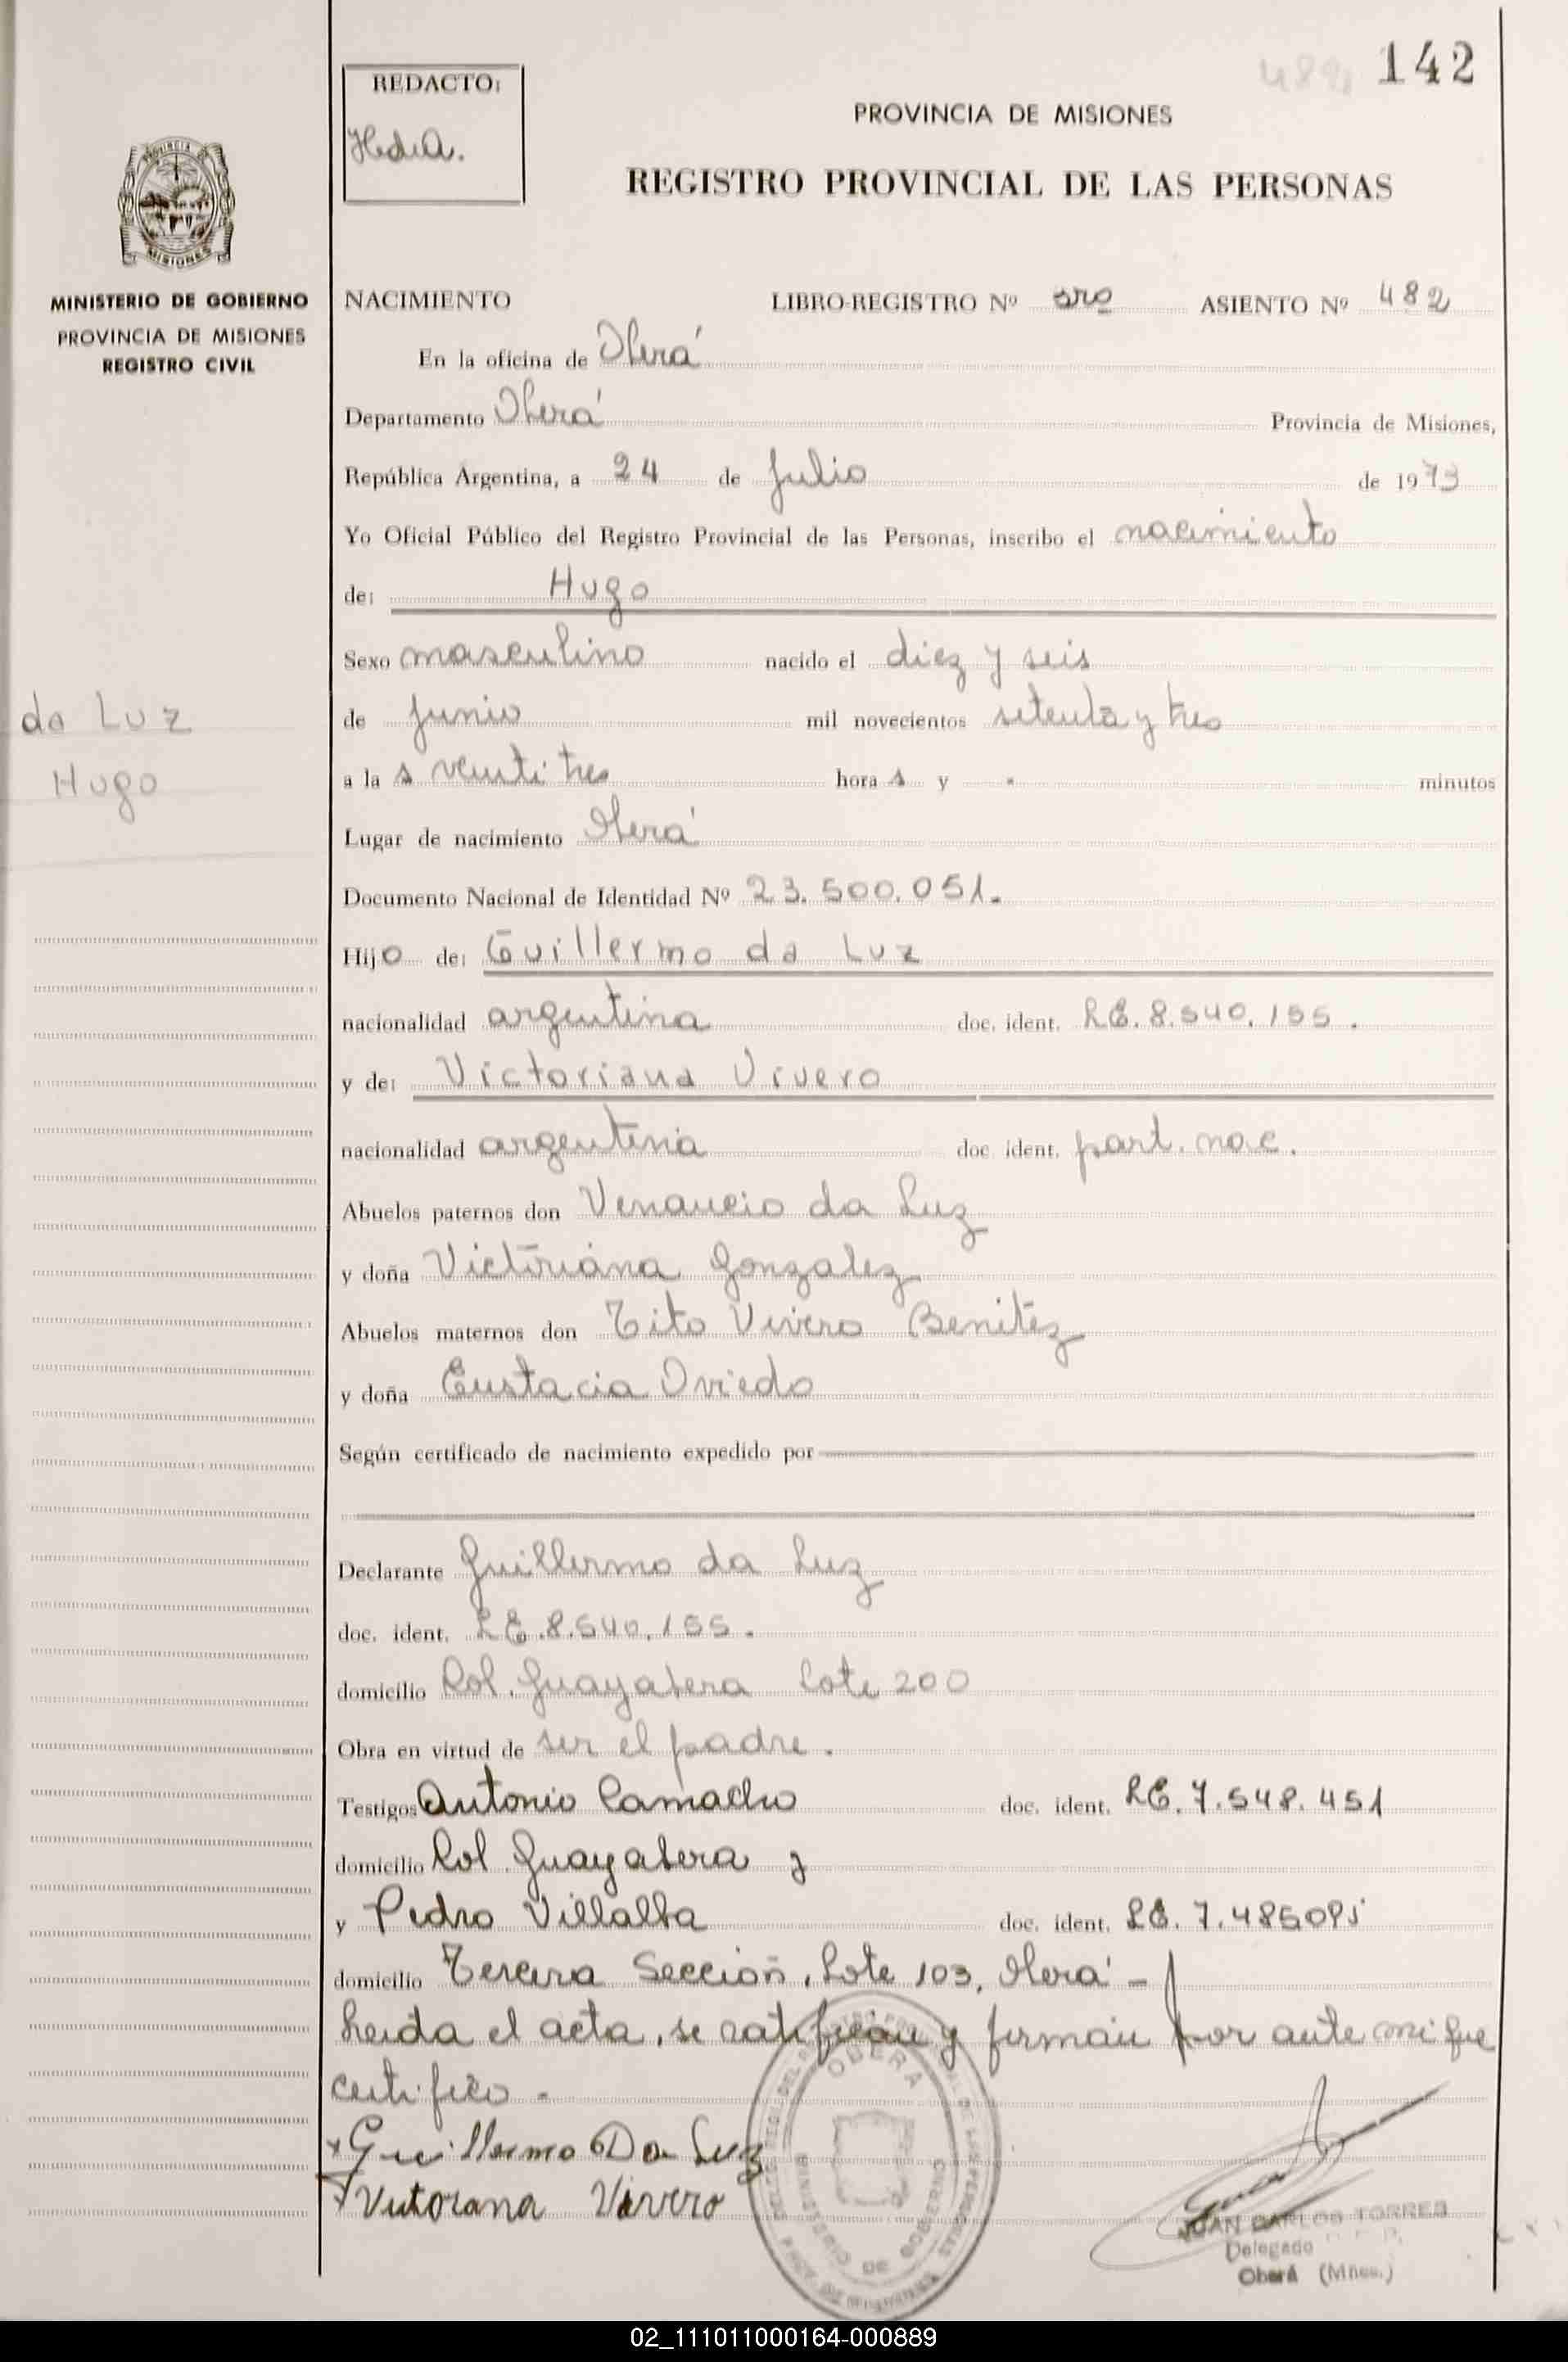 142
REDACTO:
PROVINCIA DE MISIONES
REGISTRO PROVINCIAL DE LAS PERSONAS
MISIONES
MINISTERIO DE GOBIERNO
PROVINCIA DE MISIONES
REGISTRO CIVIL
NACIMIENTO LIBRO-REGISTRO Nº 3rº ASIENTO Nº 482
En la oficina de Oberá
Departamento Oberá Provincia de Misiones,
República Argentina, a 24 de Julio de 1973
Yo Oficial Público del Registro Provincial de las Personas, inscribo el nacimiento
de: Hugo
Sexo masculino nacido el diez y seis
da Luz
Hugo
de junio mil novecientos setenta y tres
a la s veinti tres hora s y - minutos
Lugar de nacimiento Oberá
Documento Nacional de Identidad Nº 23.500.051.
Hijo de: Guillermo da Luz
nacionalidad argentina doc. ident. LE. 8.540.155.
y de: Victoriana Vivero
nacionalidad argentina doc. ident. part. nac.
Abuelos paternos don Venancio da Luz
y doña Victoriana Gonzalez
Abuelos maternos don Tito Vivero Benitez
y doña Eustacia Oviedo
Según certificado de nacimiento expedido por
Declarante Guillermo da Luz
doc. ident. LE.8.540.155.
domicilio Col. Guayabera Lote 200
Obra en virtud de ser el padre.
Testigos Antonio Camacho doc. ident. LE. 7.548.451
domicilio Col Guayabera y
y Pedro Villalba doc. ident. LE. 7.485
domicilio Tercera Sección, Lote 103, Oberá -
Leida el acta, se ratifican y firman por ante mi que
certifico.-
x Guillermo Da Luz
x Victorana Vivero
OBERA
JUAN CARLOS TORRES
Delegado
Oberá (Mnes.)
02_111011000164-000889